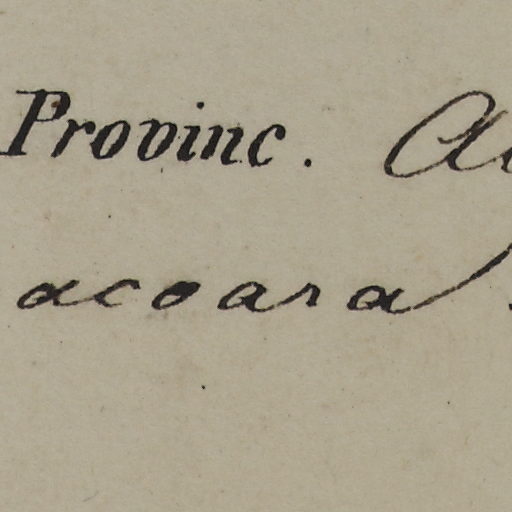 Provinc.
acoara